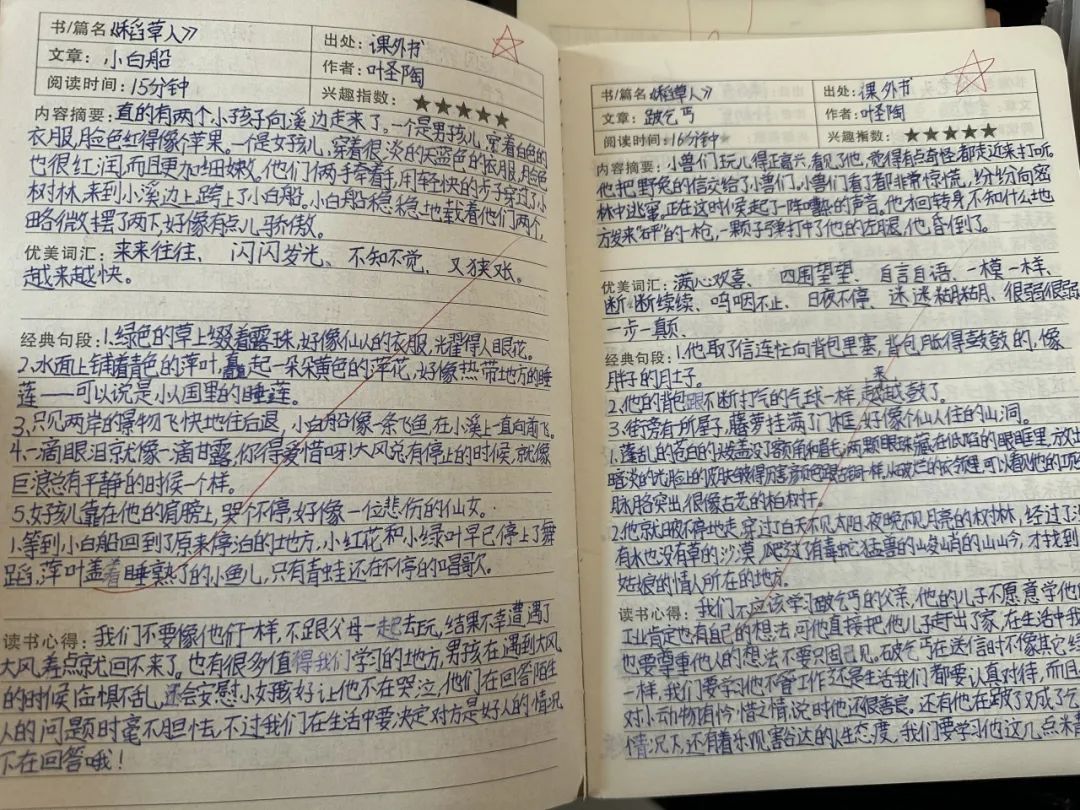 书/篇名《稻草人》 出处：课外书
文章：小白船 作者：叶圣陶
阅读时间：15分钟 兴趣指数：★★★★★
内容摘要：直的有两个小孩子向溪边走来了。一个是男孩儿，穿着白色的
衣服，脸色红得像个苹果。一个是女孩儿，穿着很淡的天蓝色的衣服，脸色
也很红润，而且更加细嫩。他们俩手牵着手，用轻快的步子穿过了小
树林，来到小溪边上，跨上了小白船。小白船稳稳地载着他们两个，
略微摆了两下，好像有点儿骄傲。
优美词汇：来来往往、闪闪发光、不知不觉、又狭又长。
越来越快。
经典句段：1.绿色的草上缀着露珠，好像仙人的衣服，光耀得人眼花。
2.水面上铺着青色的萍叶，矗起一朵朵黄色的萍花，好像热带地方的睡
莲——可以说是小人国里的睡莲。
3.只见两岸的景物飞快地往后退，小白船像一条飞鱼，在小溪上一直向前飞。
4.一滴眼泪就像一滴甘露，你得爱惜呀！大风总有停止的时候，就像
巨浪总有平静的时候一个样。
5.女孩儿靠在他的肩膀上，哭个不停，好像一位悲伤的仙女。
1.等到小白船回到了原来停泊的地方，小红花和小绿叶早已停上了舞
蹈，萍叶盖着睡熟了的小鱼儿，只有青蛙还在不停的唱歌欠。
读书心得：我们不要像他们一样，不跟父母一起去玩，结果不幸遭遇了
大风，差点就回不来了。也有很多值得我们学习的地方，男孩在遇到大风
的时候临惧不乱，还会安慰小女孩好让他不在哭泣，他们在回答陌生
人的问题时毫不胆怯，不过我们在生活中要决定对方是好人的情况
下在回答哦！
书/篇名《稻草人》 出处：课外书
文章：跛乞丐 作者：叶圣陶
阅读时间：16分钟 兴趣指数：★★★★★
内容摘要：小兽们玩儿得正高兴，看见了他，觉得有点奇怪，都走近来打听。
他把野兔的信交给了小兽们，小兽们看了都非常惊慌，纷纷向密
林中逃窜。正在这时候起了一阵嘈杂的声音。他才回转身，不知什么地
方发来“砰”的一枪，一颗子弹打中了他的左腿，他昏倒了。
优美词汇：满心欢喜、四围望望、自言自语、一模一样、
断断续续、呜咽不止、日夜不停、迷迷糊糊、很弱很弱
一步一颠、
经典句段：1.他取了信连忙向背包里塞，背包胀得鼓鼓的，像
胖子的肚子。
2.他的背包跟不断打气的气球一样，越来越鼓了。
3.街旁有所房子，藤萝挂满了门框，好像个仙人住的山洞。
1.蓬乱的苍白的头发盖没了额角和眉毛；两颗眼珠藏在低陷的眼眶里，放出
暗淡的光；脸上的皮肤皱得厉害，颜色跟古铜一样；从破烂的衣领里，可以看见他的项颈
脉胳突出，很像古老的柏树干。
2.他就日夜不停地走，穿过了白天不见太阳，夜晚不见月亮的树林，经过了没
有水也没有草的沙漠，爬过了有毒蛇猛兽的峻峭的山岭，才找到
姑娘的情人所在的地方。
读书心得：我们不应该学习跛乞丐的父亲，他的儿子不愿意学他
工业肯定也有自己的想法，可他直接把他儿子赶出了家，在生活中我
也要尊重他人的想法不要只固己见。破乞丐在送信时不像其它
一样，我们要学习他不管工作还是生活我们都要认真对待，而且
对小动物有怜惜之情，说时他还很善良。还有他在跛了又成了乞
情况下，还有着乐观害谷达的人生态度，我们要学习他这几点